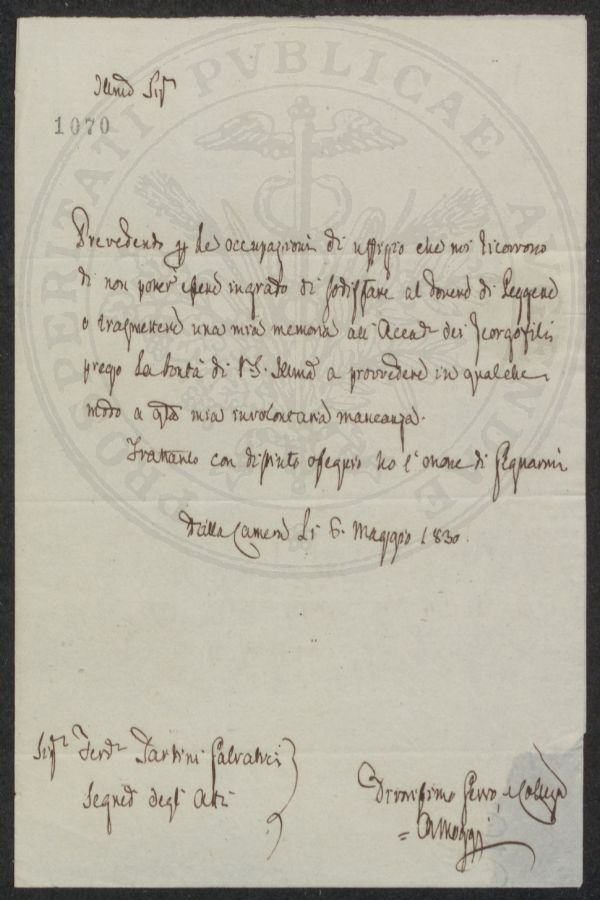 Illmo Sigr
1070
PROSPERITATI PVBLICAE AVGENDAE
Prevedendo p le occupazioni di uffizio che mi ricorrono
di non poter essere in grado di sodisfare al dovere di Leggere
o trasmettere una mia memoria all' Accad. dei Georgofili
prego la bontà di V.S. Illma a provvedere in qualche
modo a qta mia involontaria mancanza.
Frattanto con distinto ossequio ho l'onore di segnarmi
Dalla Camera Li 6. Maggio 1830.
Sigr Ferdo Tartini Salvatici
Segrio degli Atti
Devmo Servo, e Collega